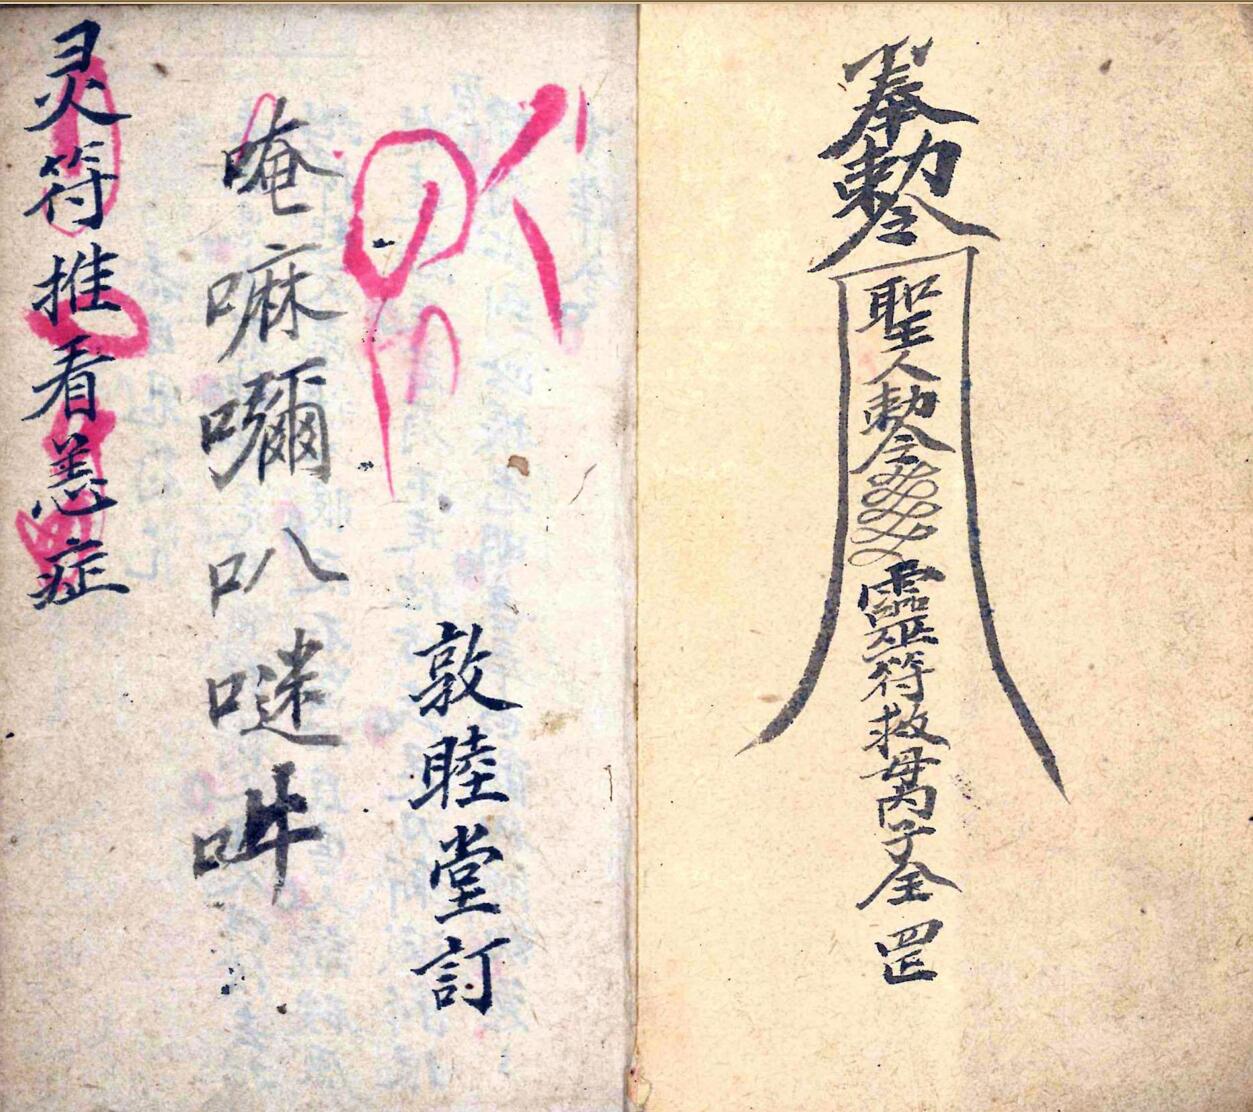 奉勅令
聖人勅令
靈符救母子全
罡
敦睦堂訂
唵嘛⿰口彌叭⿰口迷吽
灵符推看恙症